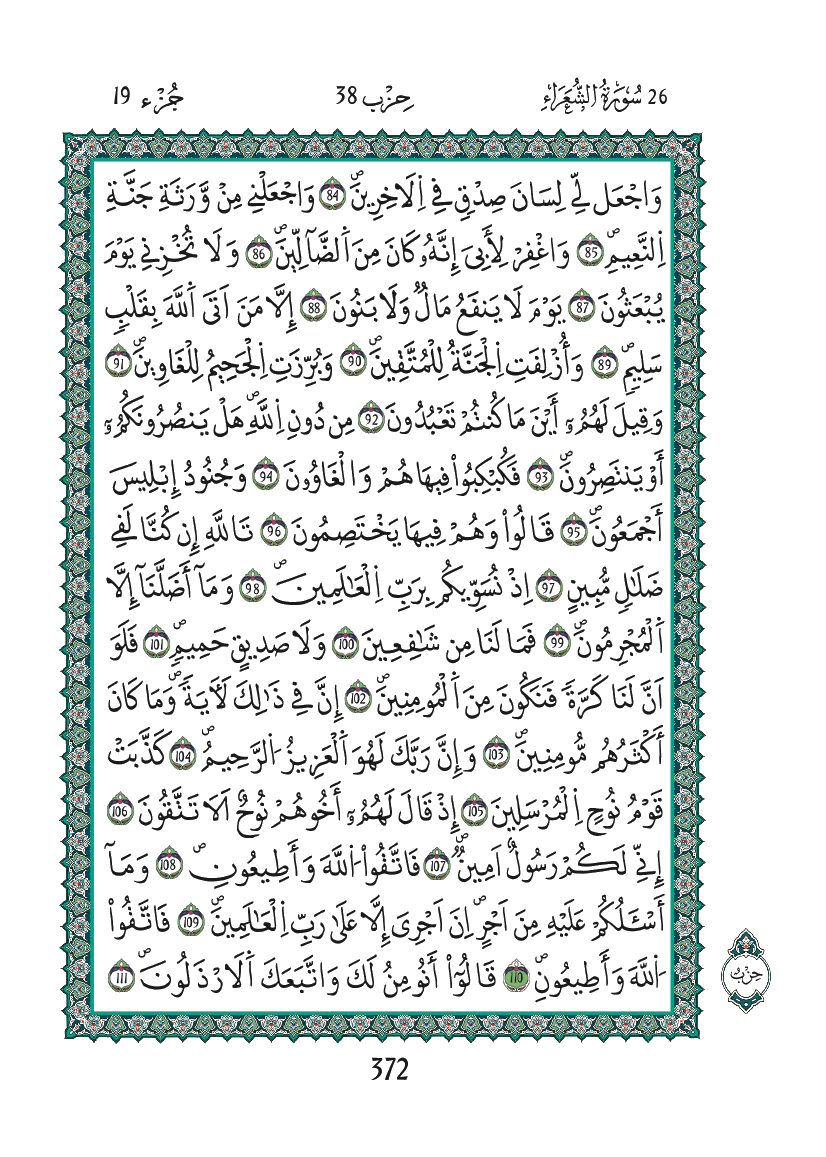 26 سُورَةُ الشُّعَرَاءِ حِزْب 38 جُزْء 19
وَاجْعَل لِّے لِسَانَ صِدْقٖ فِے اِ۬لَاخِرِينَۖ 84 وَاجْعَلْنِے مِنْ وَّرَثَةِ جَنَّةِ
اِ۬لنَّعِيمِۖ 85 وَاغْفِرْ لِأَبِيَ إِنَّهُۥ كَانَ مِنَ اَ۬لضَّآلِّينَۖ 86 وَلَا تُخْزِنِے يَوْمَ
يُبْعَثُونَ 87 يَوْمَ لَا يَنفَعُ مَالٞ وَلَا بَنُونَ 88 إِلَّا مَنَ اَتَى اَ۬للَّهَ بِقَلْبٖ
سَلِيمٖۖ 89 وَأُزْلِفَتِ اِ۬لْجَنَّةُ لِلْمُتَّقِينَۖ 90 وَبُرِّزَتِ اِ۬لْجَحِيمُ لِلْغَاوِينَۖ 91
وَقِيلَ لَهُمُۥٓ أَيْنَ مَا كُنتُمْ تَعْبُدُونَ 92 مِن دُونِ اِ۬للَّهِۖ هَلْ يَنصُرُونَكُمُۥٓ
أَوْ يَنتَصِرُونَۖ 93 فَكُبْكِبُواْ فِيهَا هُمْ وَالْغَاوُۥنَ 94 وَجُنُودُ إِبْلِيسَ
أَجْمَعُونَۖ 95 قَالُواْ وَهُمْ فِيهَا يَخْتَصِمُونَ 96 تَاللَّهِ إِن كُنَّا لَفِے
ضَلَٰلٖ مُّبِينٍ 97 اِذْ نُسَوِّيكُم بِرَبِّ اِ۬لْعَٰلَمِينَۖ 98 وَمَآ أَضَلَّنَآ إِلَّا
اَ۬لْمُجْرِمُونَۖ 99 فَمَا لَنَا مِن شَٰفِعِينَ 100 وَلَا صَدِيقٍ حَمِيمٖۖ 101 فَلَوَ
اَنَّ لَنَا كَرَّةٗ فَنَكُونَ مِنَ اَ۬لْمُومِنِينَۖ 102 إِنَّ فِے ذَٰلِكَ لَأٓيَةٗۖ وَمَا كَانَ
أَكْثَرُهُم مُّومِنِينَۖ 103 وَإِنَّ رَبَّكَ لَهُوَ اَ۬لْعَزِيزُ اُ۬لرَّحِيمُۖ 104 كَذَّبَتْ
قَوْمُ نُوحٍ اِ۬لْمُرْسَلِينَ 105 إِذْ قَالَ لَهُمُۥٓ أَخُوهُمْ نُوحٌ اَلَا تَتَّقُونَ 106
إِنِّے لَكُمْ رَسُولٌ اَمِينٞۖ 107 فَاتَّقُواْ اُ۬للَّهَ وَأَطِيعُونِۖ 108 وَمَآ
أَسْـَٔلُكُمْ عَلَيْهِ مِنَ اَجْرٍۖ اِنَ اَجْرِيَ إِلَّا عَلَىٰ رَبِّ اِ۬لْعَٰلَمِينَۖ 109 فَاتَّقُواْ
اُ۬للَّهَ وَأَطِيعُونِۖ 110 قَالُوٓاْ أَنُومِنُ لَكَ وَاتَّبَعَكَ اَ۬لَارْذَلُونَۖ 111
حِزْب
372